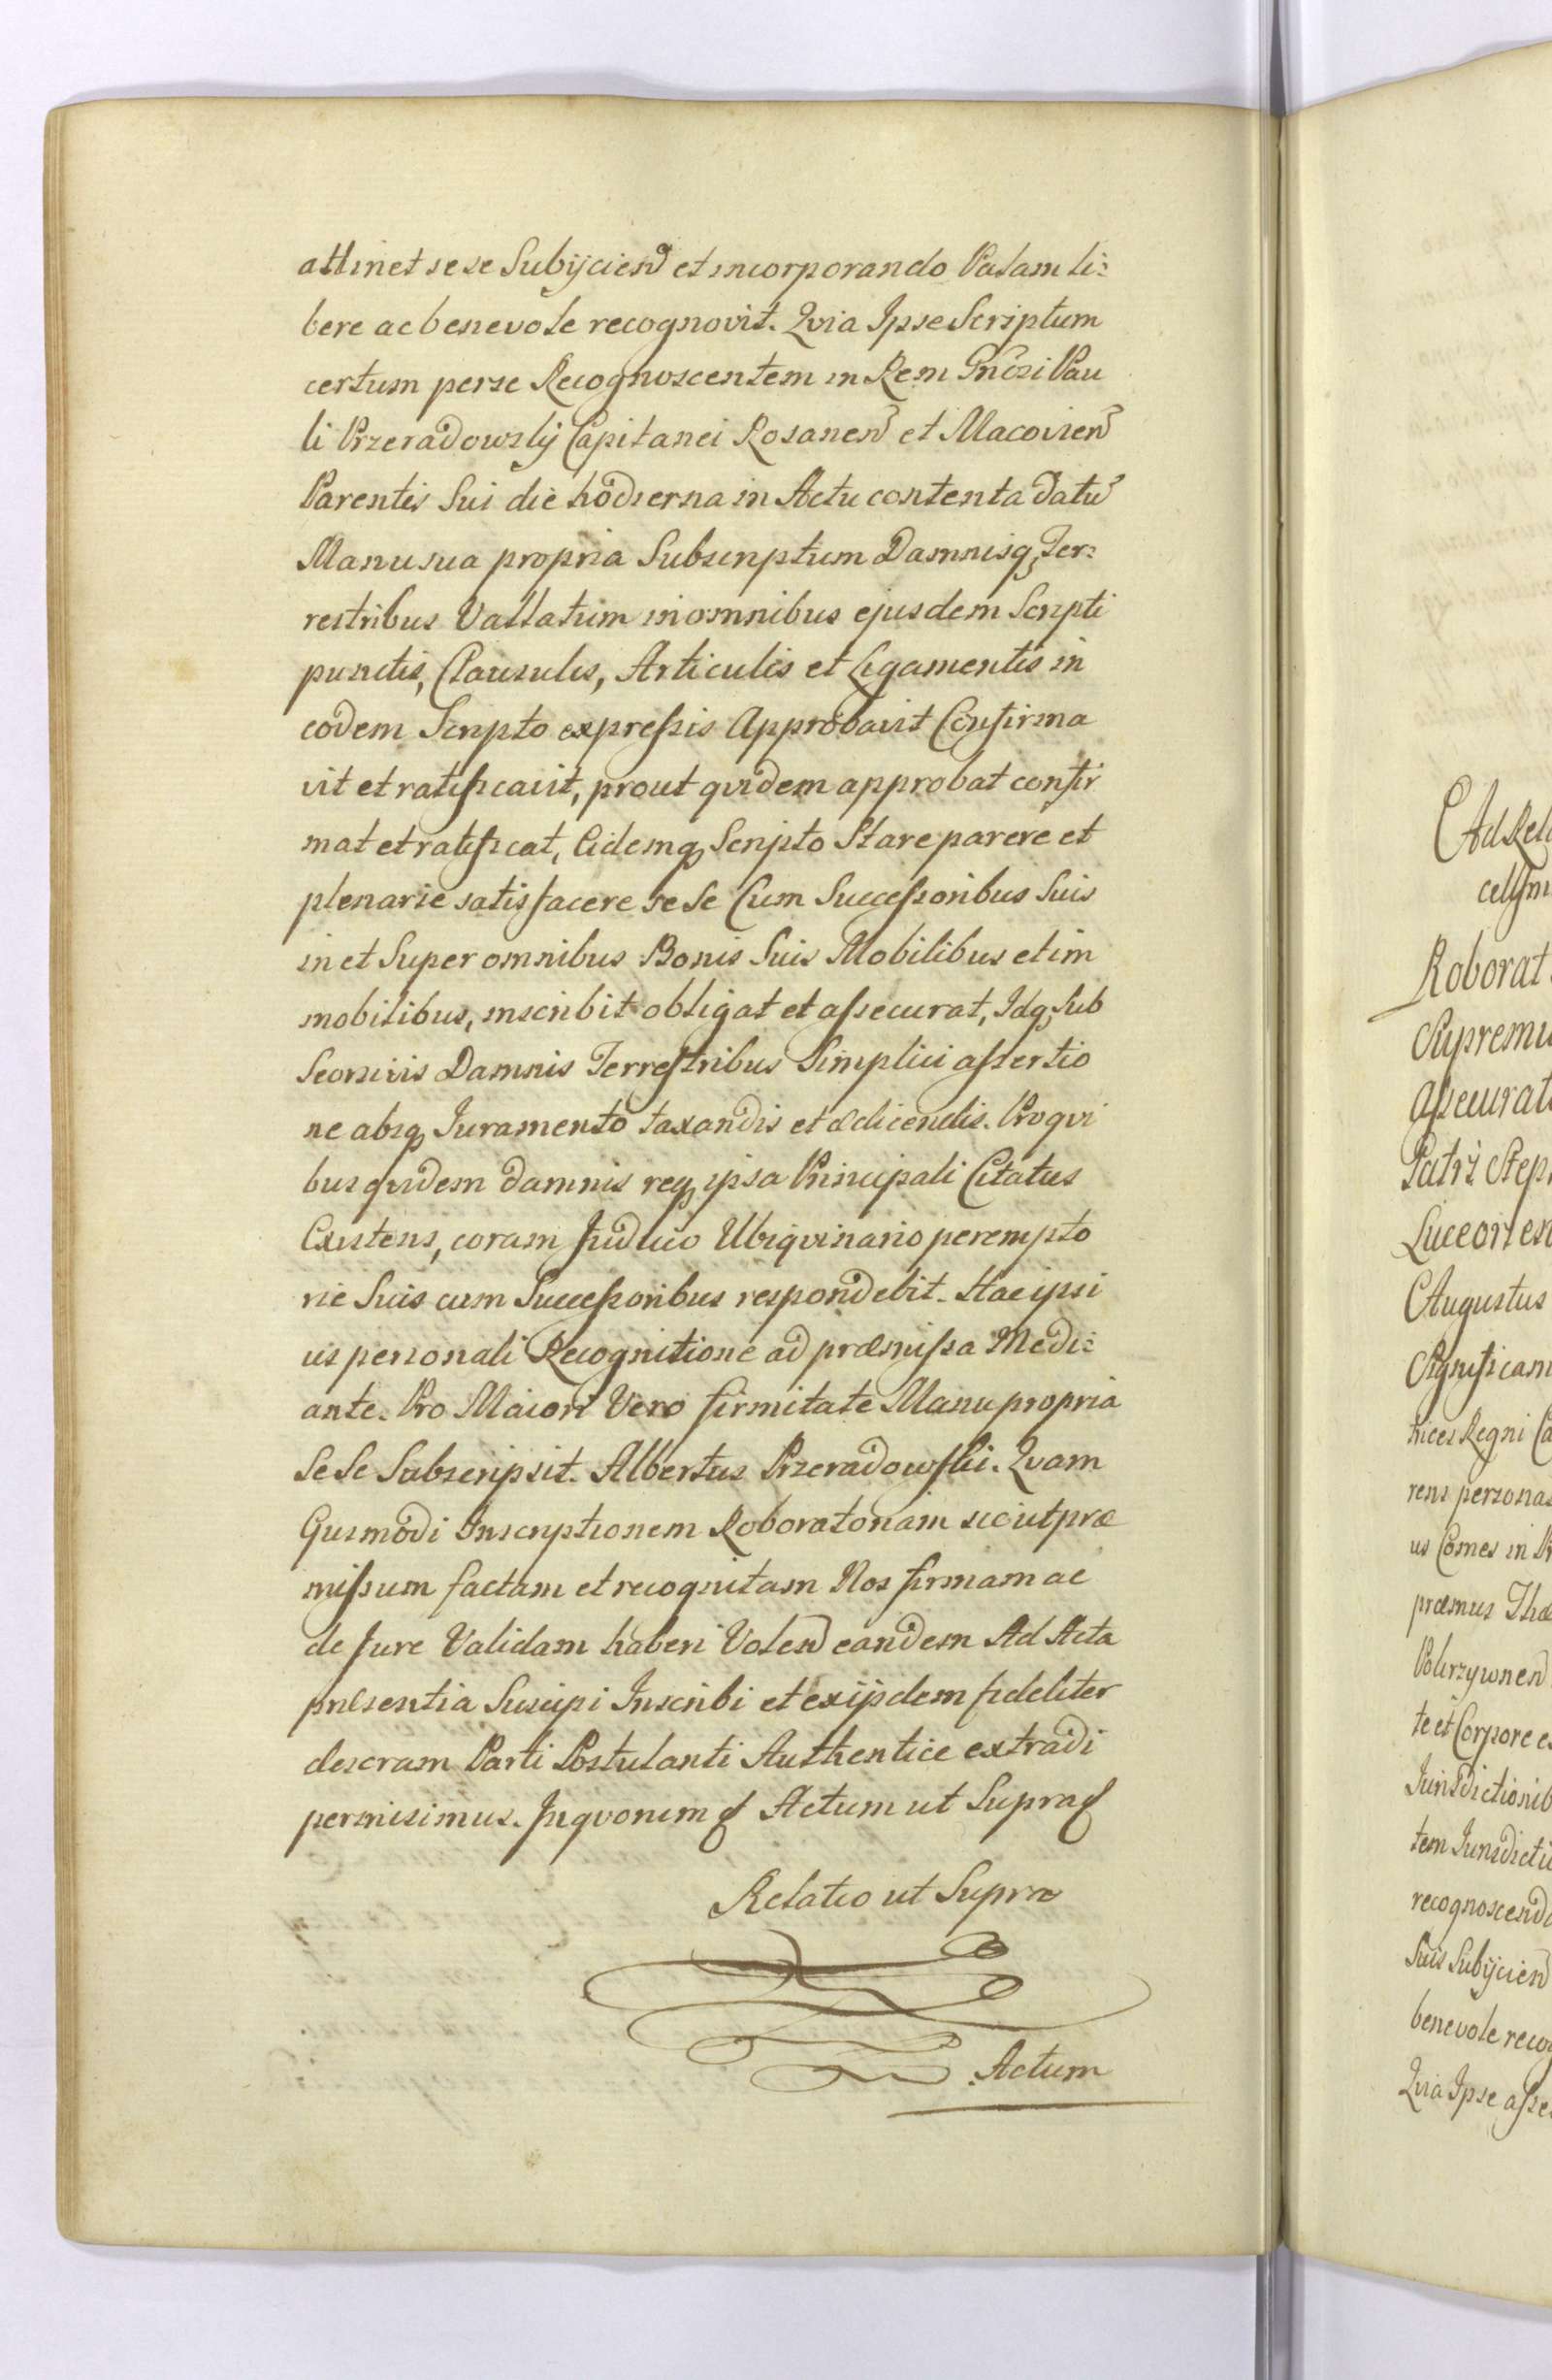 attinet sese Subijciend et incorporando Palam li:
bere ac benevole recognovit. Qvia Ipse Scriptum
certum per se Recognoscentem in Rem Gnosi Pau
li Przeradowskij Capitanei Rosanen et Macovien
Parentis Sui die hodierna in Actu contenta datu
Manu sua propria Subscriptum Damnisq Ter:
restribus Vallatum in omnibus ejusdem Scripti
punctis, Clausulis, Articulis et Ligamentis in
eodem Scripto expressis Approbavit Confirma
vit et ratificavit, prout qvidem approbat confir
mat et ratificat, Eidemq Scripto Stare parere et
plenarie satisfacere se Se Cum Successoribus Suis
in et Super omnibus Bonis Suis Mobilibus et im
mobilibus, inscribit obligat et assecurat, Idq Sub
Seorsivis Damnis Terrestribus Simplici assertio
ne absq Juramento taxandis et edicendis. Pro qvi
bus qvidem damnis req ipsa Principali Citatus
Existens, coram Judicio Ubiqvinario perempto
rie Suis cum Successoribus respondebit. Hac ipsi
us personali Recognitione ad præmissa Medi:
ante. Pro Maiori Vero firmitate Manu propria
Se Se Subscripsit. Albertus Przeradowski. Qvam
Eiusmodi Inscriptionem Roboratoriam sicut præ
missum factam et recognitam Nos firmam ac
de Jure Validam haberi Volen eandem Ad Acta
præsentia Suscipi Inscribi et ex ijsdem fideliter
descram Parti Postulanti Authentice extradi
permisimus. In qvorum Actum ut Supra
Relatio ut Supra
Actum
Ad Rela
Roborat
Supremu
Assecurat
Patri Step
Luceorien
Augustus
Significam
trices Regni Ca
rens personas
us Comes in Pr
præmus The
Pokrzywnen
te et Corpore e
Jurisdictionib
tem Jurisdictio
recognoscendo
Suis Subijcien
benevole recog
Qvia Ipse asse